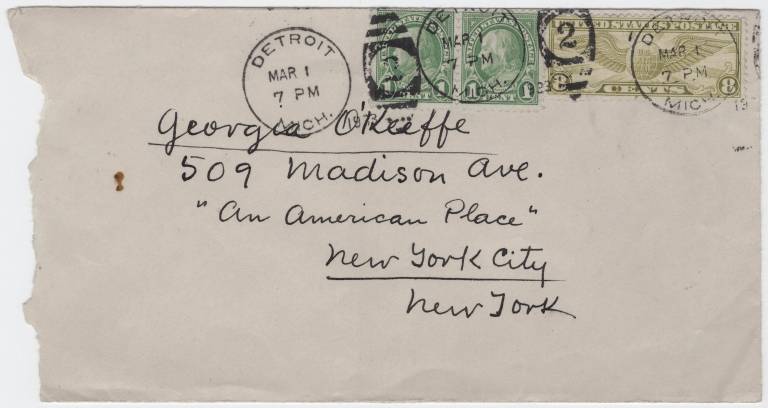 DETROIT
MAR 1
7 PM
MICH.
193
1 CENT 1
1 CENT 1
2
MAR 1
7 PM
MICH.
UNITED STATES POSTAGE
8 CENTS 8
MAR 1
7 PM
MICH.
19
Georgia O'Keeffe
509 Madison Ave.
"An American Place"
New York City
New York